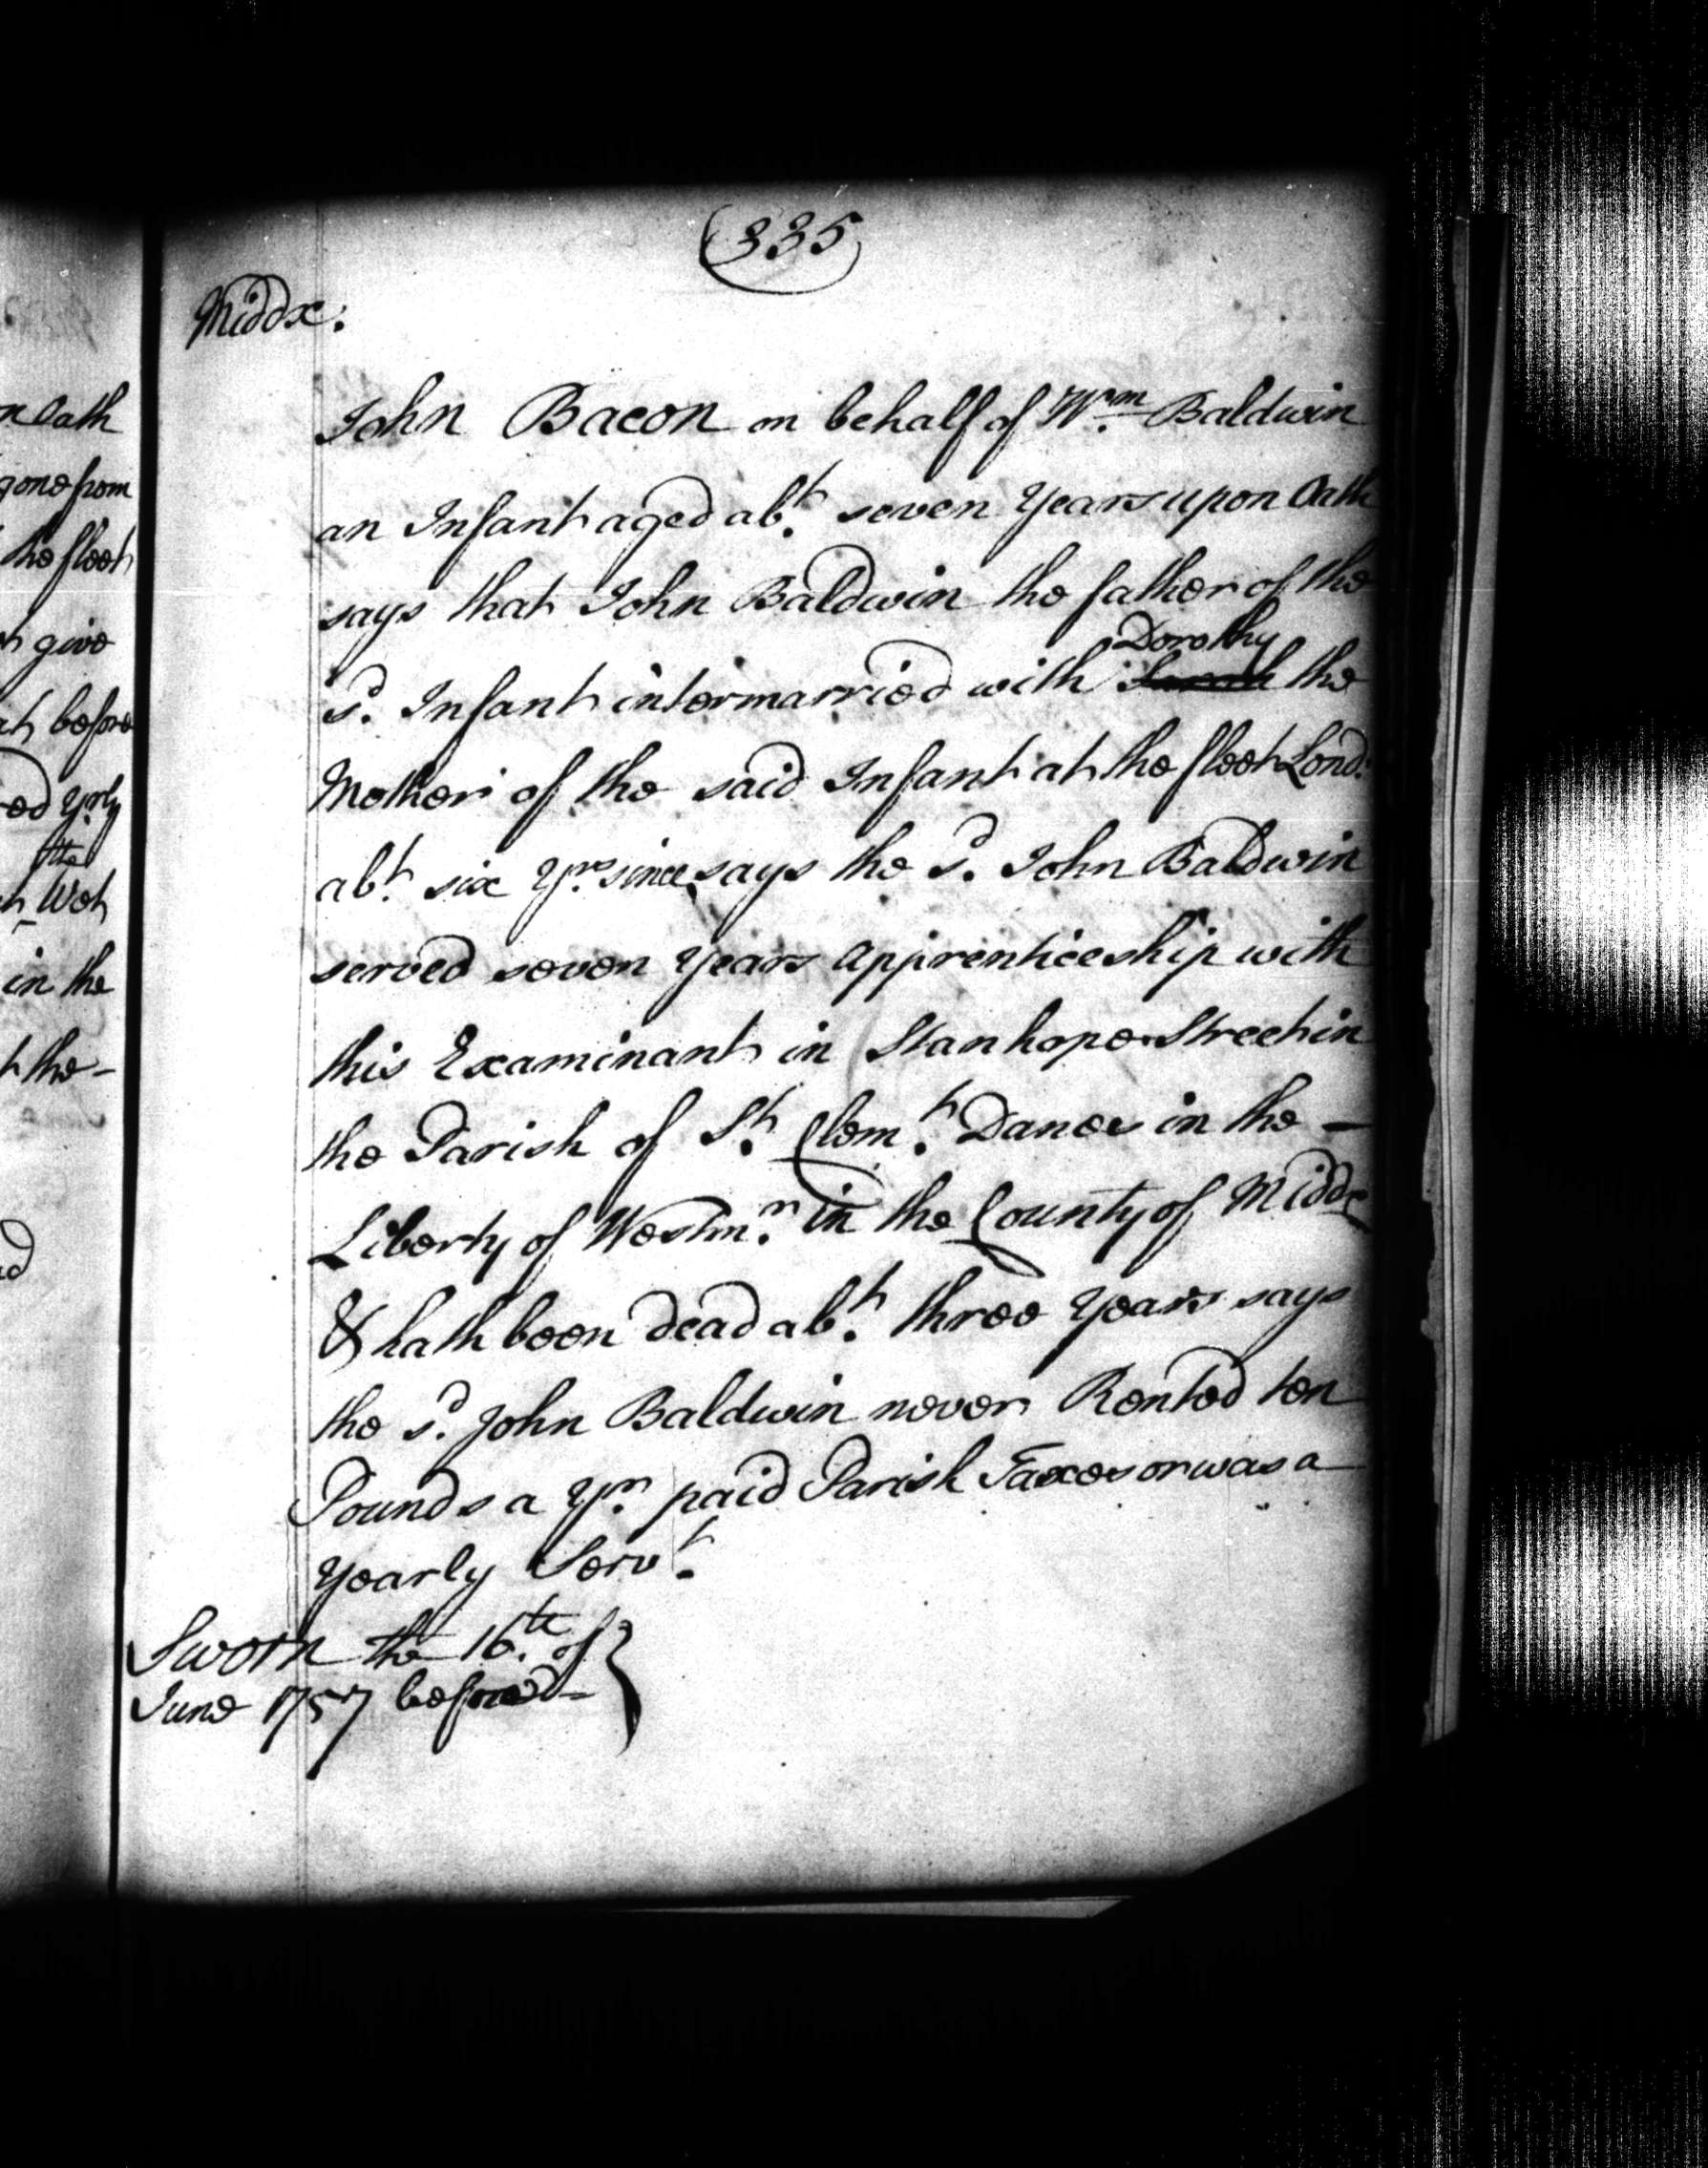 n Oath
gone from
the fleet
give
at before
ed Yrly
the
Wet
in the
t the -
(335)
Middx:
John Bacon on behalf of Wm. Baldwin
an Infant aged abt. seven Years upon Oath
says that John Baldwin the father of the
Dorothy
sd. Infant intermarried with Sarah the
Mother of the said Infant at the fleet Lond:
abt. six Yrs. since says the sd. John Baldwin
served seven Years Apprenticeship with
this Examinant in Stanhope Street in
the Parish of St. Clemt. Danes in the -
Liberty of Westmr. in the County of Middx
& hath been dead abt. three Years says
the sd. John Baldwin never Rented ten
Pounds a Yr. paid Parish Taxes or was a
Yearly Servt.
Sworn the 16th. of
June 1757 before -